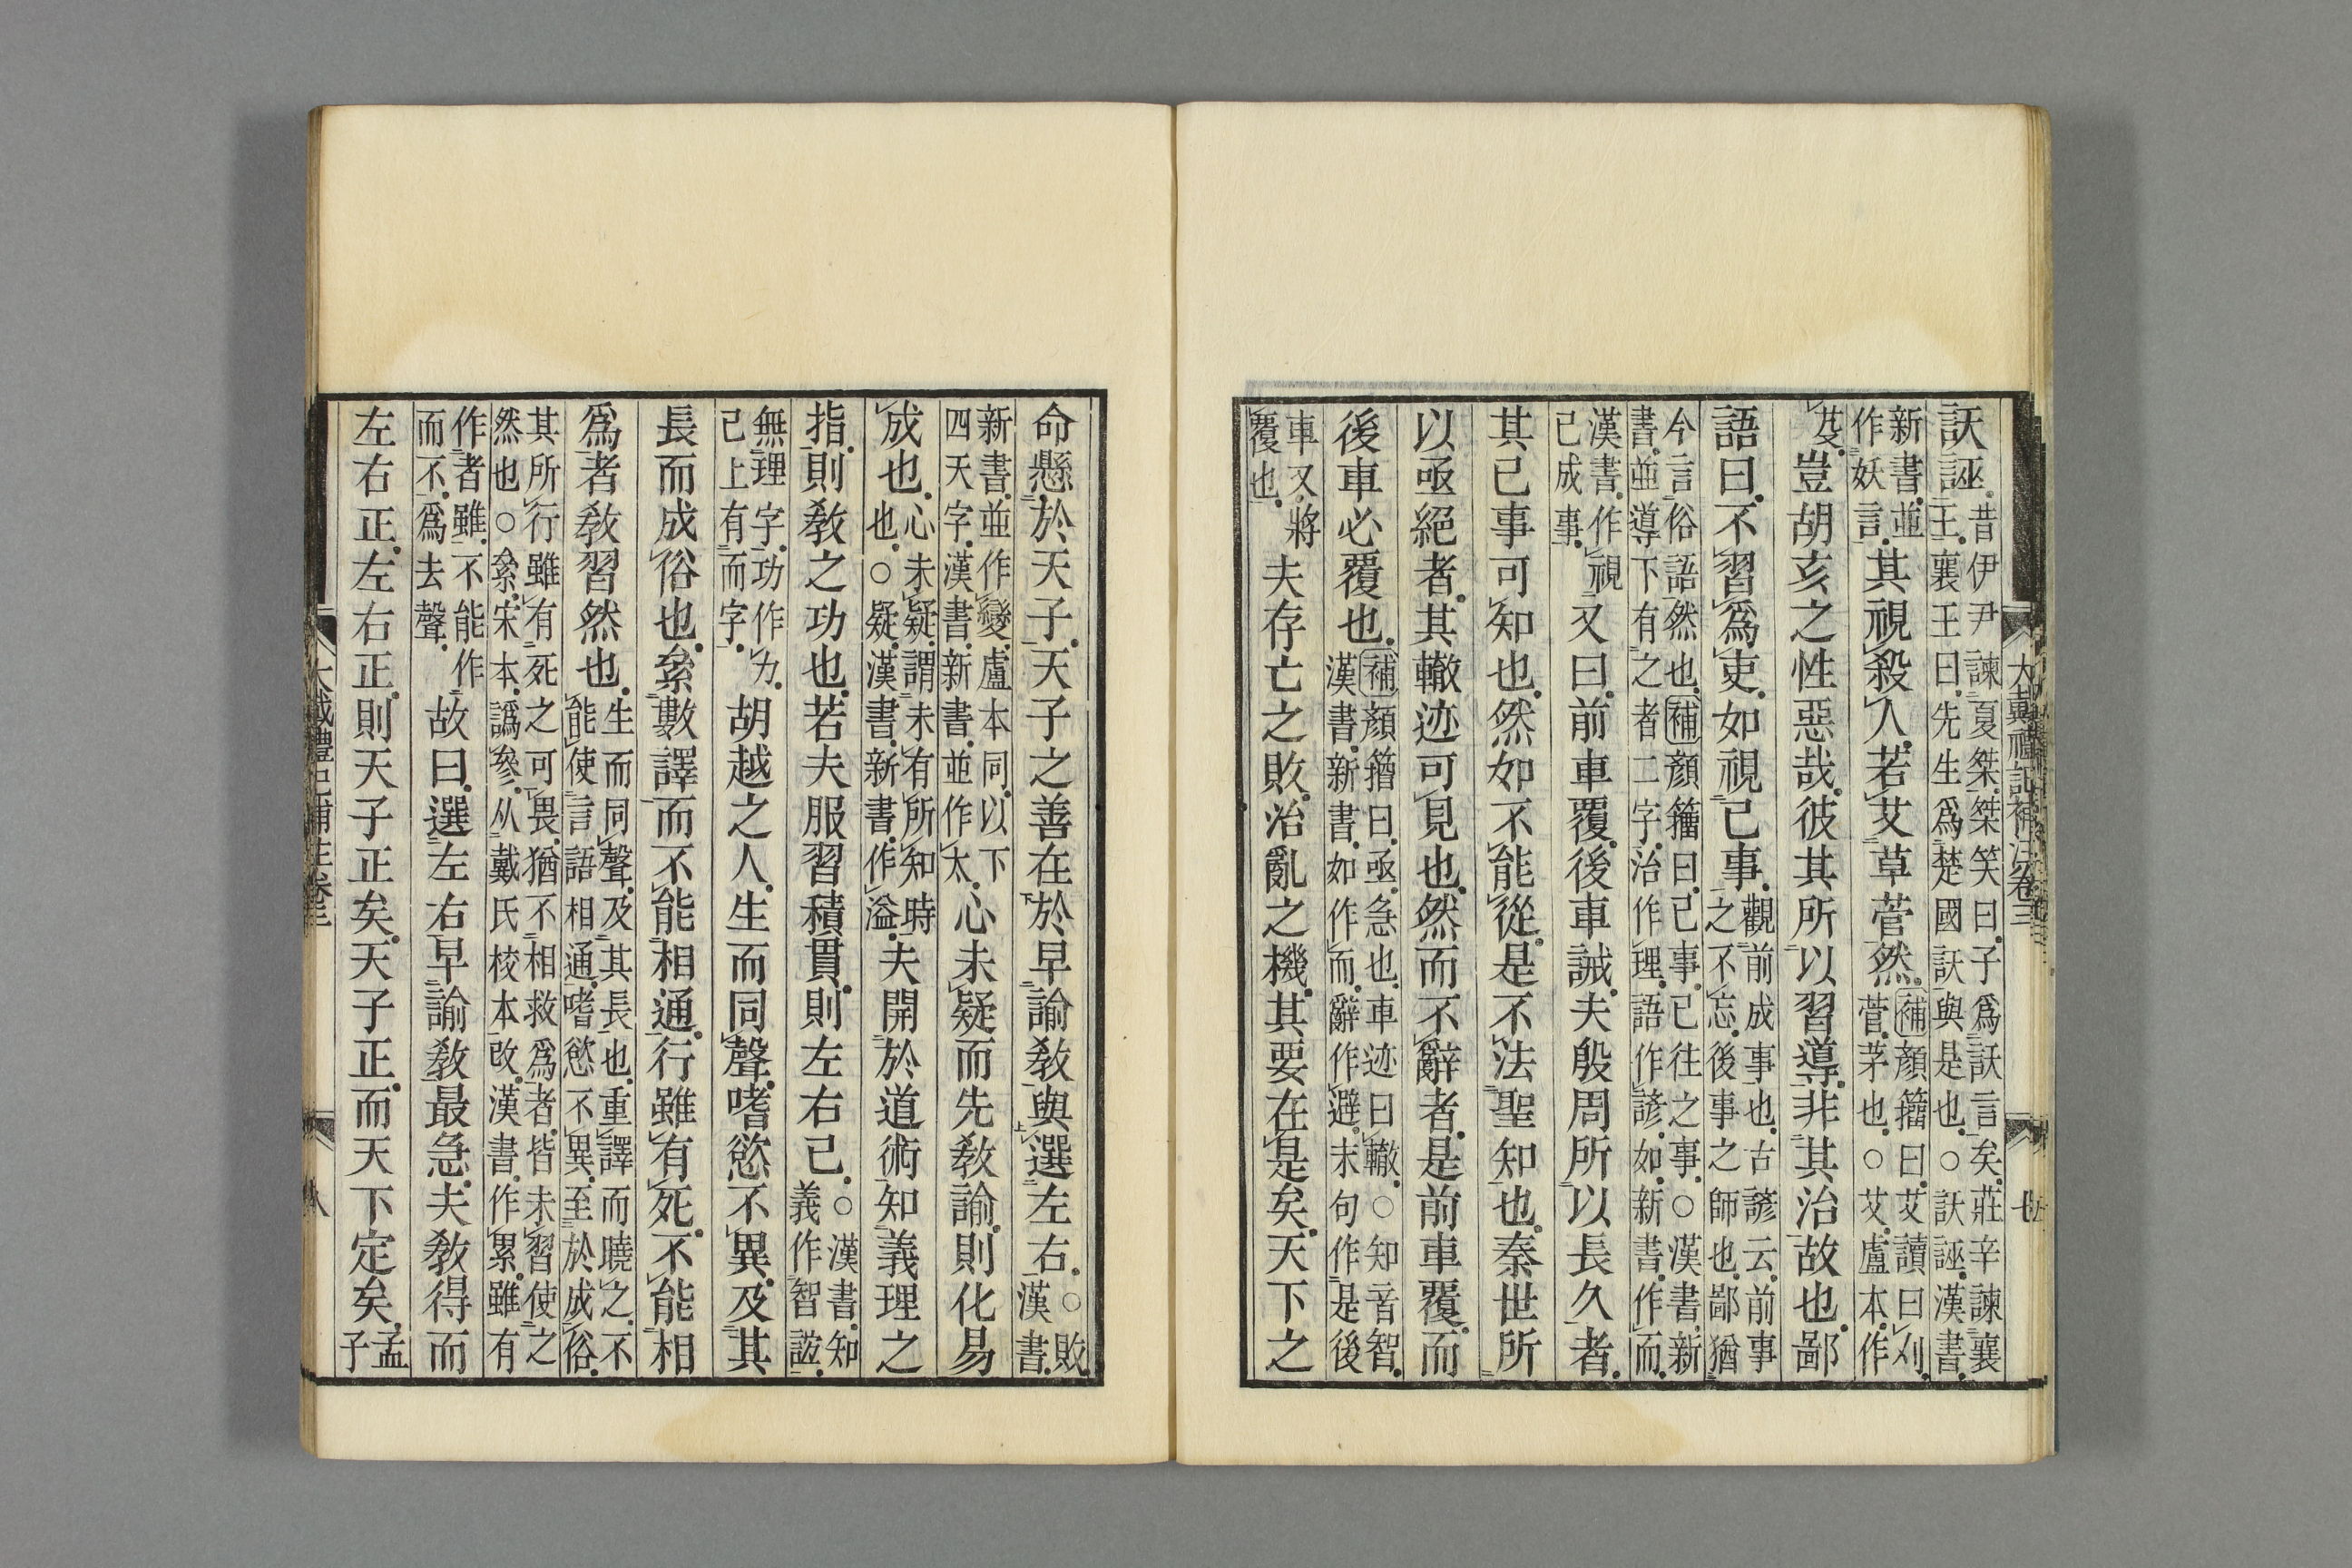 大戴禮記補注卷三
七
訞誣昔伊尹諫夏桀桀笑曰子爲訞言矣莊辛諫襄
王襄王曰先生爲楚國訞與是也○訞誣漢書
新書並
作妖言其視殺人若艾草菅然補顏籀曰艾讀曰刈
菅茅也○艾盧本作
芟豈胡亥之性惡哉彼其所以習導非其治故也鄙
語曰不習爲吏如視已事觀前成事也古諺云前事
之不忘後事之師也鄙猶
今言俗語然也補顏籀曰已事已往之事○漢書新
書並導下有之者二字治作理語作諺如新書作而
漢書作視
已成事又曰前車覆後車誡夫殷周所以長久者
其已事可知也然如不能從是不法聖知也秦世所
以亟絕者其轍迹可見也然而不辭者是前車覆而
後車必覆也補顏籀曰亟急也車迹曰轍○知音智
漢書新書如作而辭作避末句作是後
車又將
覆也夫存亡之敗治亂之機其要在是矣天下之
命懸於天子天子之善在於早諭敎與選左右○敗
漢書
新書並作變盧本同以下
四天字漢書新書並作太心未疑而先敎諭則化易
成也心未疑謂未有所知時
也○疑漢書新書作溢夫開於道術知義理之
指則敎之功也若夫服習積貫則左右已○漢書知
義作智誼
無理字功作力
已上有而字胡越之人生而同聲嗜慾不異及其
長而成俗也絫數譯而不能相通行雖有死不能相
爲者敎習然也生而同聲及其長也重譯而曉之不
能使言語相通嗜慾不異至於成俗
其所行雖有死之可畏猶不相救爲者皆未習使之
然也○絫宋本譌參从戴氏校本改漢書作累雖有
作者雖不能作
而不爲去聲故曰選左右早諭敎最急夫敎得而
左右正左右正則天子正矣天子正而天下定矣孟
子
大戴禮記補注卷三
八